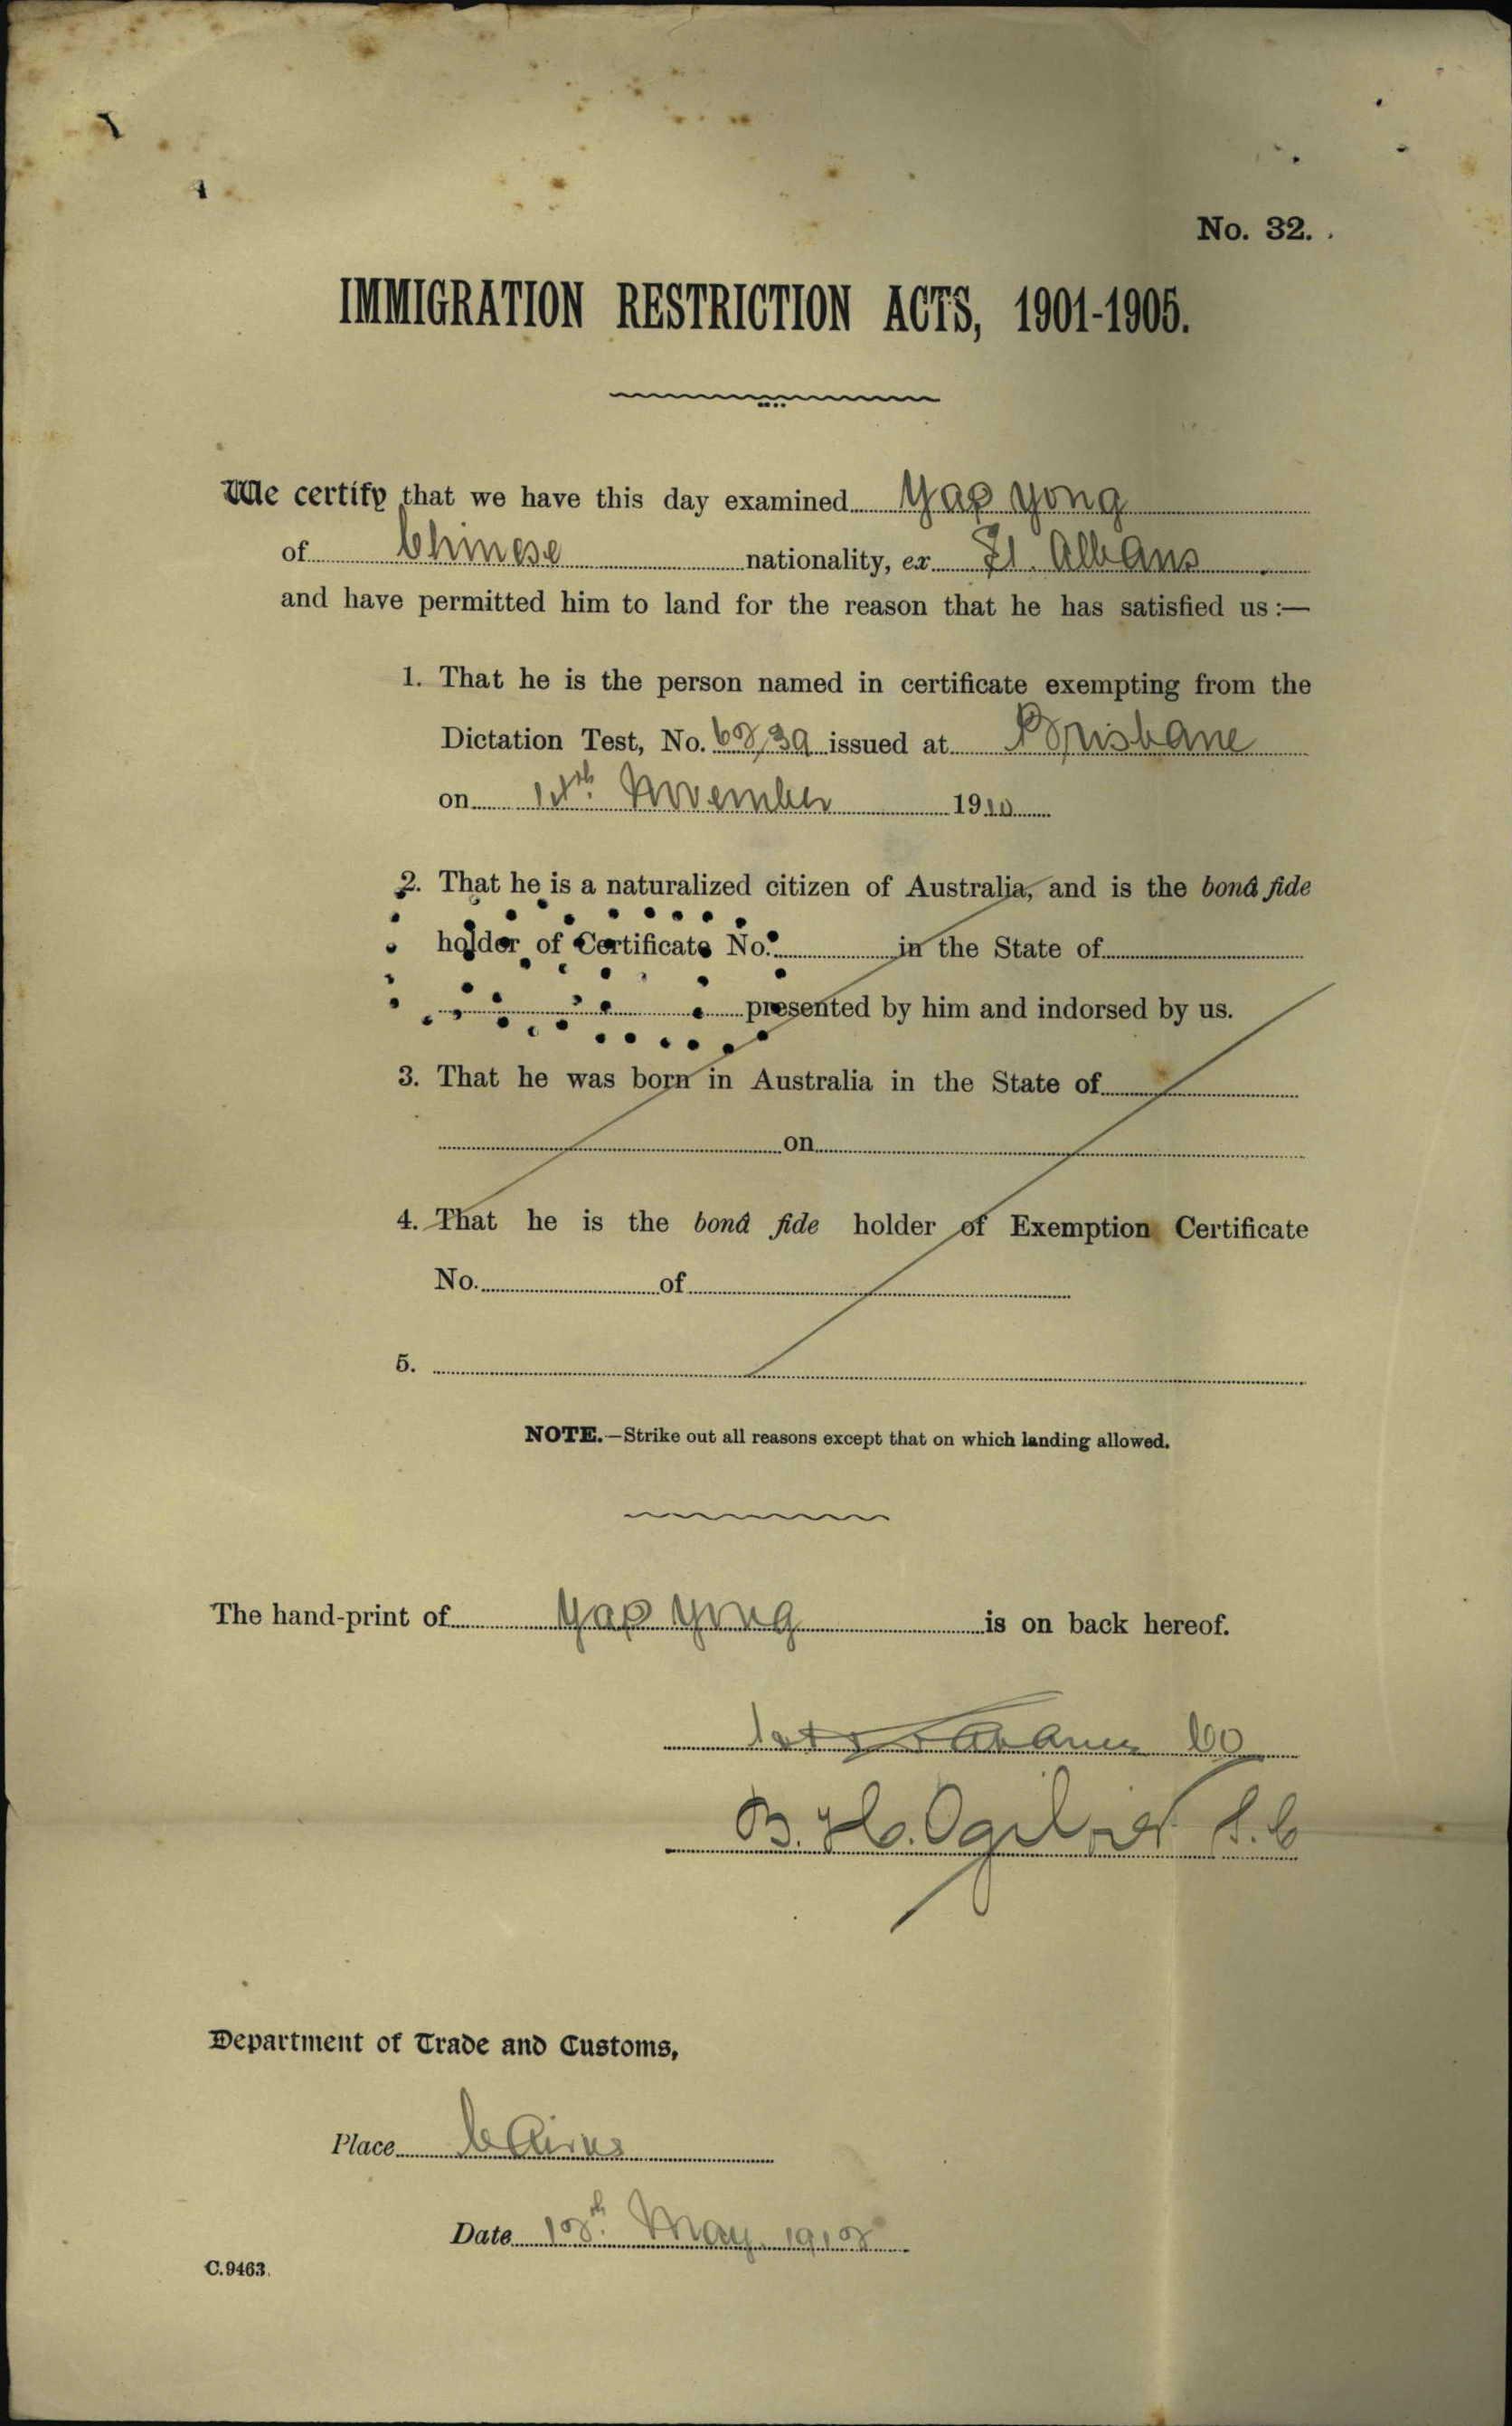 No. 32.
IMMIGRATION RESTRICTION ACTS, 1901-1905.
We certify that we have this day examined Yap Yong
of Chinese nationality, ex St. Albans
and have permitted him to land for the reason that he has satisfied us :—
1. That he is the person named in certificate exempting from the
Dictation Test, No. issued at Brisbane
on November 1910
2. That he is a naturalized citizen of Australia, and is the bonâ fide
holder of Certificate No. in the State of
presented by him and indorsed by us.
3. That he was born in Australia in the State of
on
4. That he is the bonâ fide holder of Exemption Certificate
No. of
5.
NOTE.—Strike out all reasons except that on which landing allowed.
The hand-print of Yap Yong is on back hereof.
B. H. Ogilvie
Department of Trade and Customs,
Place Cairns
Date 18th. May 1918
C.9463.